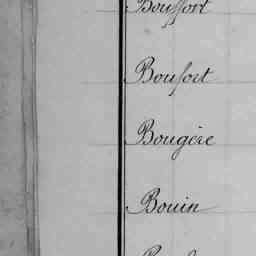 Bouffort
Boufort
Bougère
Bouin